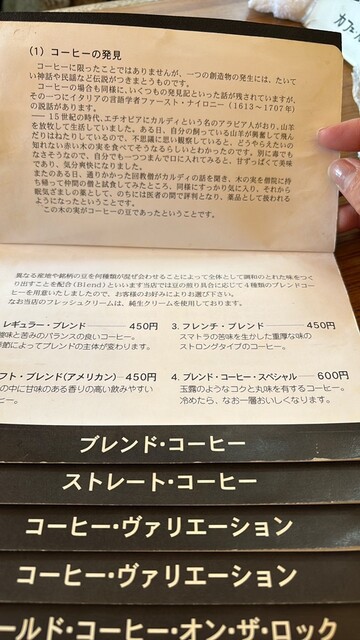 (1) コーヒーの発見
コーヒーに限ったことではありませんが、一つの創造物の発生には、たいてい
い神話や民話など伝説がつきまとうものです。
コーヒーの場合も同様に、いくつもの発見記といった話が残されていますが、
その一つにイタリアの言語学者ファースト・ナイロニー(1613〜1707年)
の説話があります。
── 15世紀の時代、エチオピアにカルディという名のアラビア人がおり、山羊
を放牧して生活していました。ある日、自分の飼っている山羊が興奮して飛ん
だりはねたりしているので、不思議に思い観察していると、どうやらえたいの
知れない赤い木の実を食べてそうなるらしいとわかったのです。別に毒でも
なさそうなので、自分でも一つつまんで口に入れてみると、甘ずっぱくて美味
であり、気分爽快になりました。
またのある日、通りかかった回教僧がカルディの話を聞き、木の実を僧院に持
ち帰って仲間の僧と試食してみたところ、同様にすっかり気に入り、それから
眠気ざましの薬として、のちには医者の間で評判となり、薬品として扱われる
ようになったということです。
この木の実がコーヒーの豆であったということです。
異なる産地や銘柄の豆を何種類か混ぜ合わせることによって全体として調和のとれた味をつく
り出すことを配合(Blend)といいます当店では豆の煎り具合に応じて4種類のブレンドコー
ヒーを用意いたしましたので、お客様のお好みによりお選び下さい。
なお当店のフレッシュクリームは、純生クリームを使用しております。
レギュラー・ブレンド ── 450円
味と苦みのバランスの良いコーヒー。
節によってブレンドの主体が変わります。
フト・ブレンド(アメリカン) ─ 450円
の中に甘味のある香りの高い飲みやすい
ヒー。
3. フレンチ・ブレンド ── 450円
スマトラの苦味を生かした重厚な味の
ストロングタイプのコーヒー。
4. ブレンド・コーヒー・スペシャル ─ 600円
玉露のようなコクと丸味を有するコーヒー。
冷めたら、なお一層おいしくなります。
ブレンド・コーヒー
ストレート・コーヒー
コーヒー・ヴァリエーション
コーヒー・ヴァリエーション
ールド・コーヒー・オン・ザ・ロック